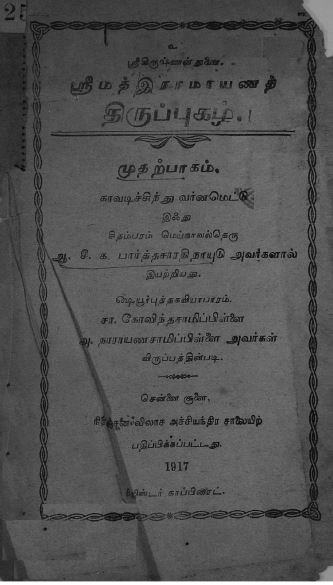 25
உ
ஸ்ரீகிருஷ்ணன் துணை.
ஸ்ரீமத் இராமாயணத்
திருப்புகழ்.
முதற்பாகம்.
காவடிச்சிந்து வர்னமெட்டு
இஃது
சிதம்பரம் மெய்காவல்தெரு
ஆ. சீ. க. பார்த்தசாரதிநாயுடு அவர்களால்
இயற்றியது.
ஷெயூர்புத்தகவியாபாரம்.
சா. கோவிந்தசாமிப்பிள்ளை
நாராயணசாமிப்பிள்ளை அவர்கள்
விருப்பத்தின்படி.
சென்னை சூளை,
அச்சியந்திர சாலையிற்
பதிப்பிக்கப்பட்டது.
1917
காப்பிரைட்.